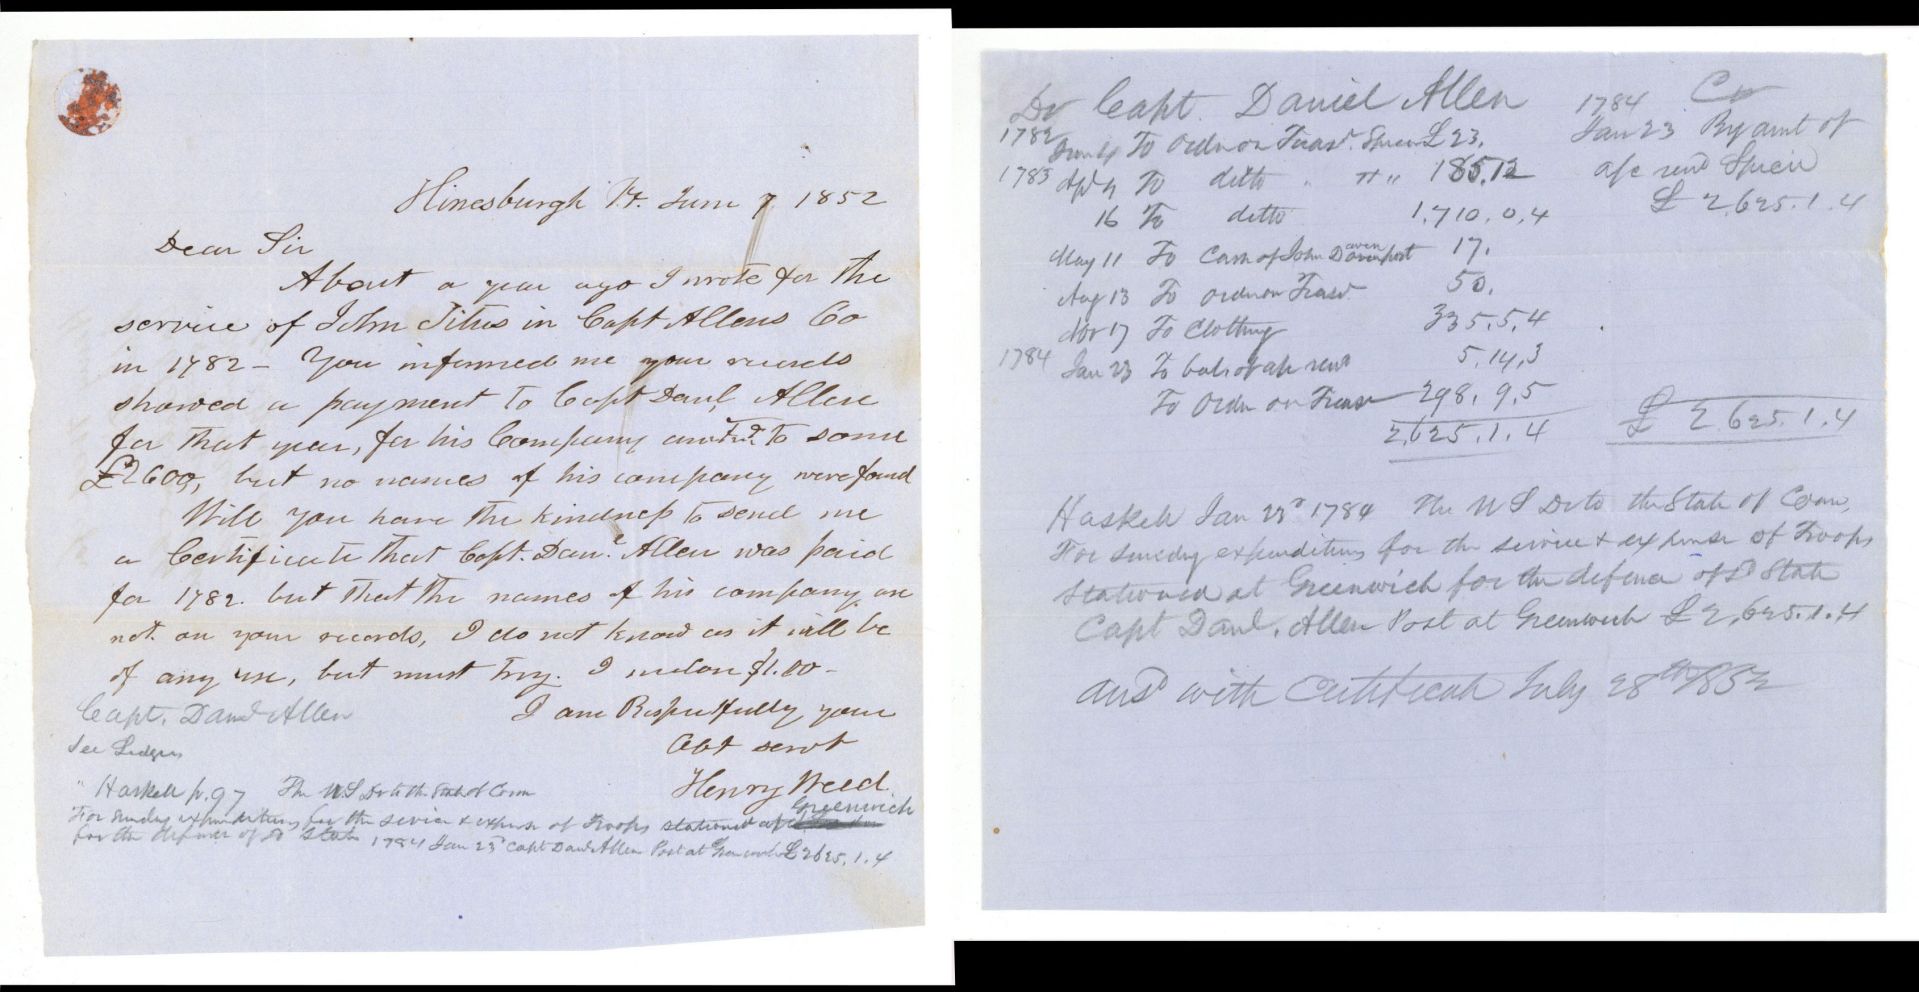 Hinesburgh Vt. June 7 1852
Dear Sir
About a year ago I wrote for the
service of John Titus in Capt Allens Co
in 1782 - You informed me your records
showed a payment to Capt Danl Allen
for that year, for his Company amtd to some
£2600, but no names of his company were found
Will you have the kindness to send me
a Certificate that Capt. Danl Allen was paid
for 1782. but that the names of his company are
not on your records, I do not know as it will be
of any use, but must try. I inclose $1.00 -
I am Respectfully your
Obt servt
Henry Weed
Capt. Danl Allen
See Ledgers
" Haskell p. 97 The U S Dr to the State of Conn
For Sundry expenditures for the service & expense of Troops stationed at Greenwich
for the defence of sd State 1784 Jan 23d Capt Danl Allen Post at Greenwich £2625.1.4
Dr Capt. Daniel Allen Cr
1782 June 4 To Order on Treasr. £23.
1783 Apl 9 To ditto " " " 185.12
16 To ditto 1,710.0.4
May 11 To Cash of John Davenport 17.
Aug 13 To order on Treasr 50.
Nov 17 To Clothing 335.5.4
1784 Jan 23 To bal. of a/c rend 5.14.3
To Order on Treasr 298.9.5
2,625.1.4
1784
Jan 23 By amt of
a/c rend Specie
£ 2,625.1.4
£ 2,625.1.4
Haskell Jan 23d 1784 The U S Dr to the State of Conn,
For Sundry expenditures for the service & expense of Troops
stationed at Greenwich for the defence of sd State
Capt Danl. Allen Post at Greenwich £2,625.1.4
Ansd with Certificate July 28th 1852